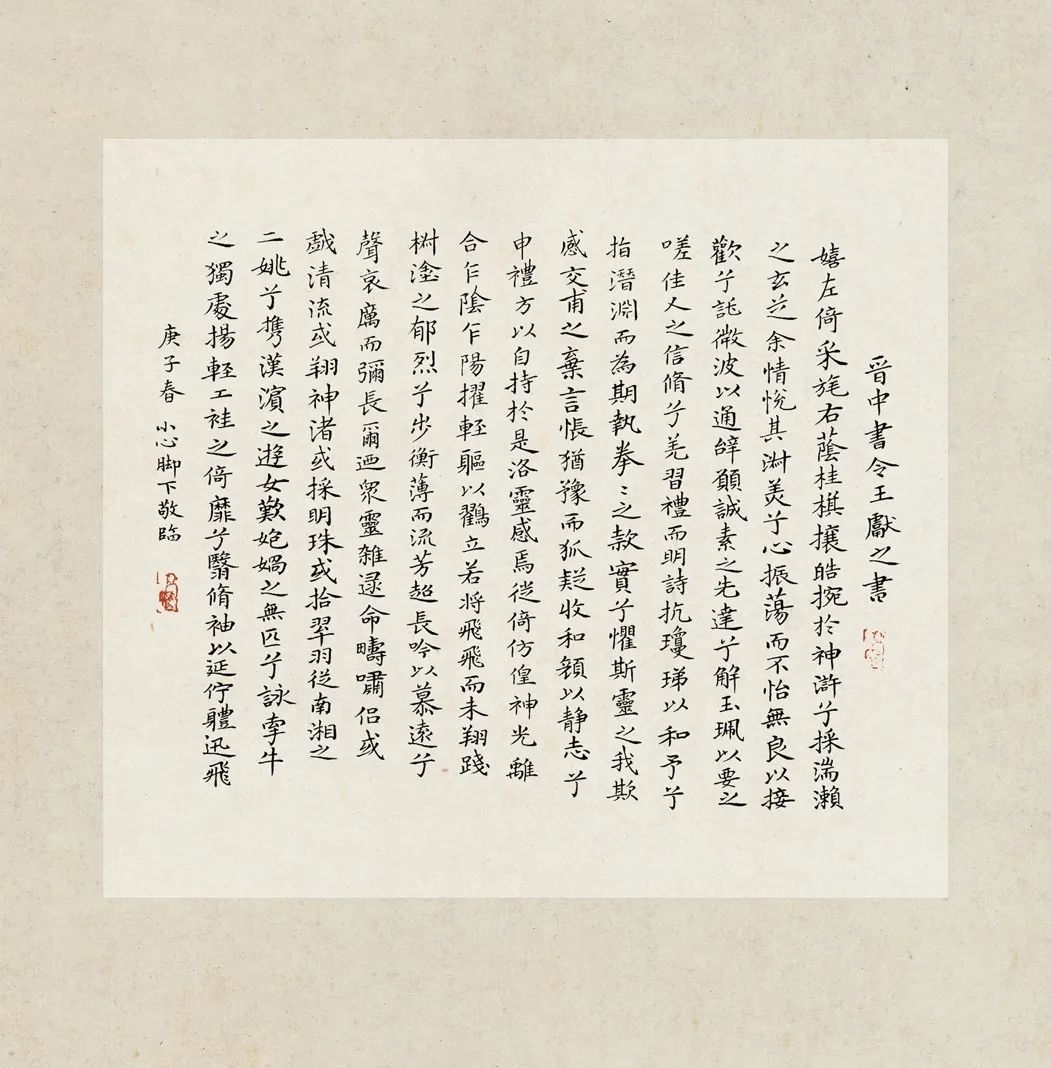 晉中書令王獻之書
嬉左倚采旄右蔭桂棋攘皓捥於神滸兮採湍瀨
之玄芝余情悅其淋美兮心振蕩而不怡無良以接
歡兮託微波以通辝願誠素之先達兮解玉珮以要之
嗟佳人之信脩兮羌習禮而明詩抗瓊珶以和予兮
指潛淵而為期執拳〻之款實兮懼斯靈之我欺
感交甫之棄言悵猶豫而狐疑收和顏以靜志兮
申禮方以自持於是洛靈感焉徙倚仿偟神光離
合乍陰乍陽擢輕軀以鸖立若將飛飛而未翔踐
樹塗之郁烈兮步衡薄而流芳超長吟以慕遠兮
聲哀厲而彌長爾迺衆靈雜遝命疇嘯侶或
戲清流或翔神渚或採明珠或拾翠羽從南湘之
二姚兮攜漢濱之遊女歎媌媧之無匹兮詠牽牛
之獨處揚輕工袿之倚靡兮翳脩袖以延佇軆迅飛
庚子春 小心脚下敬臨